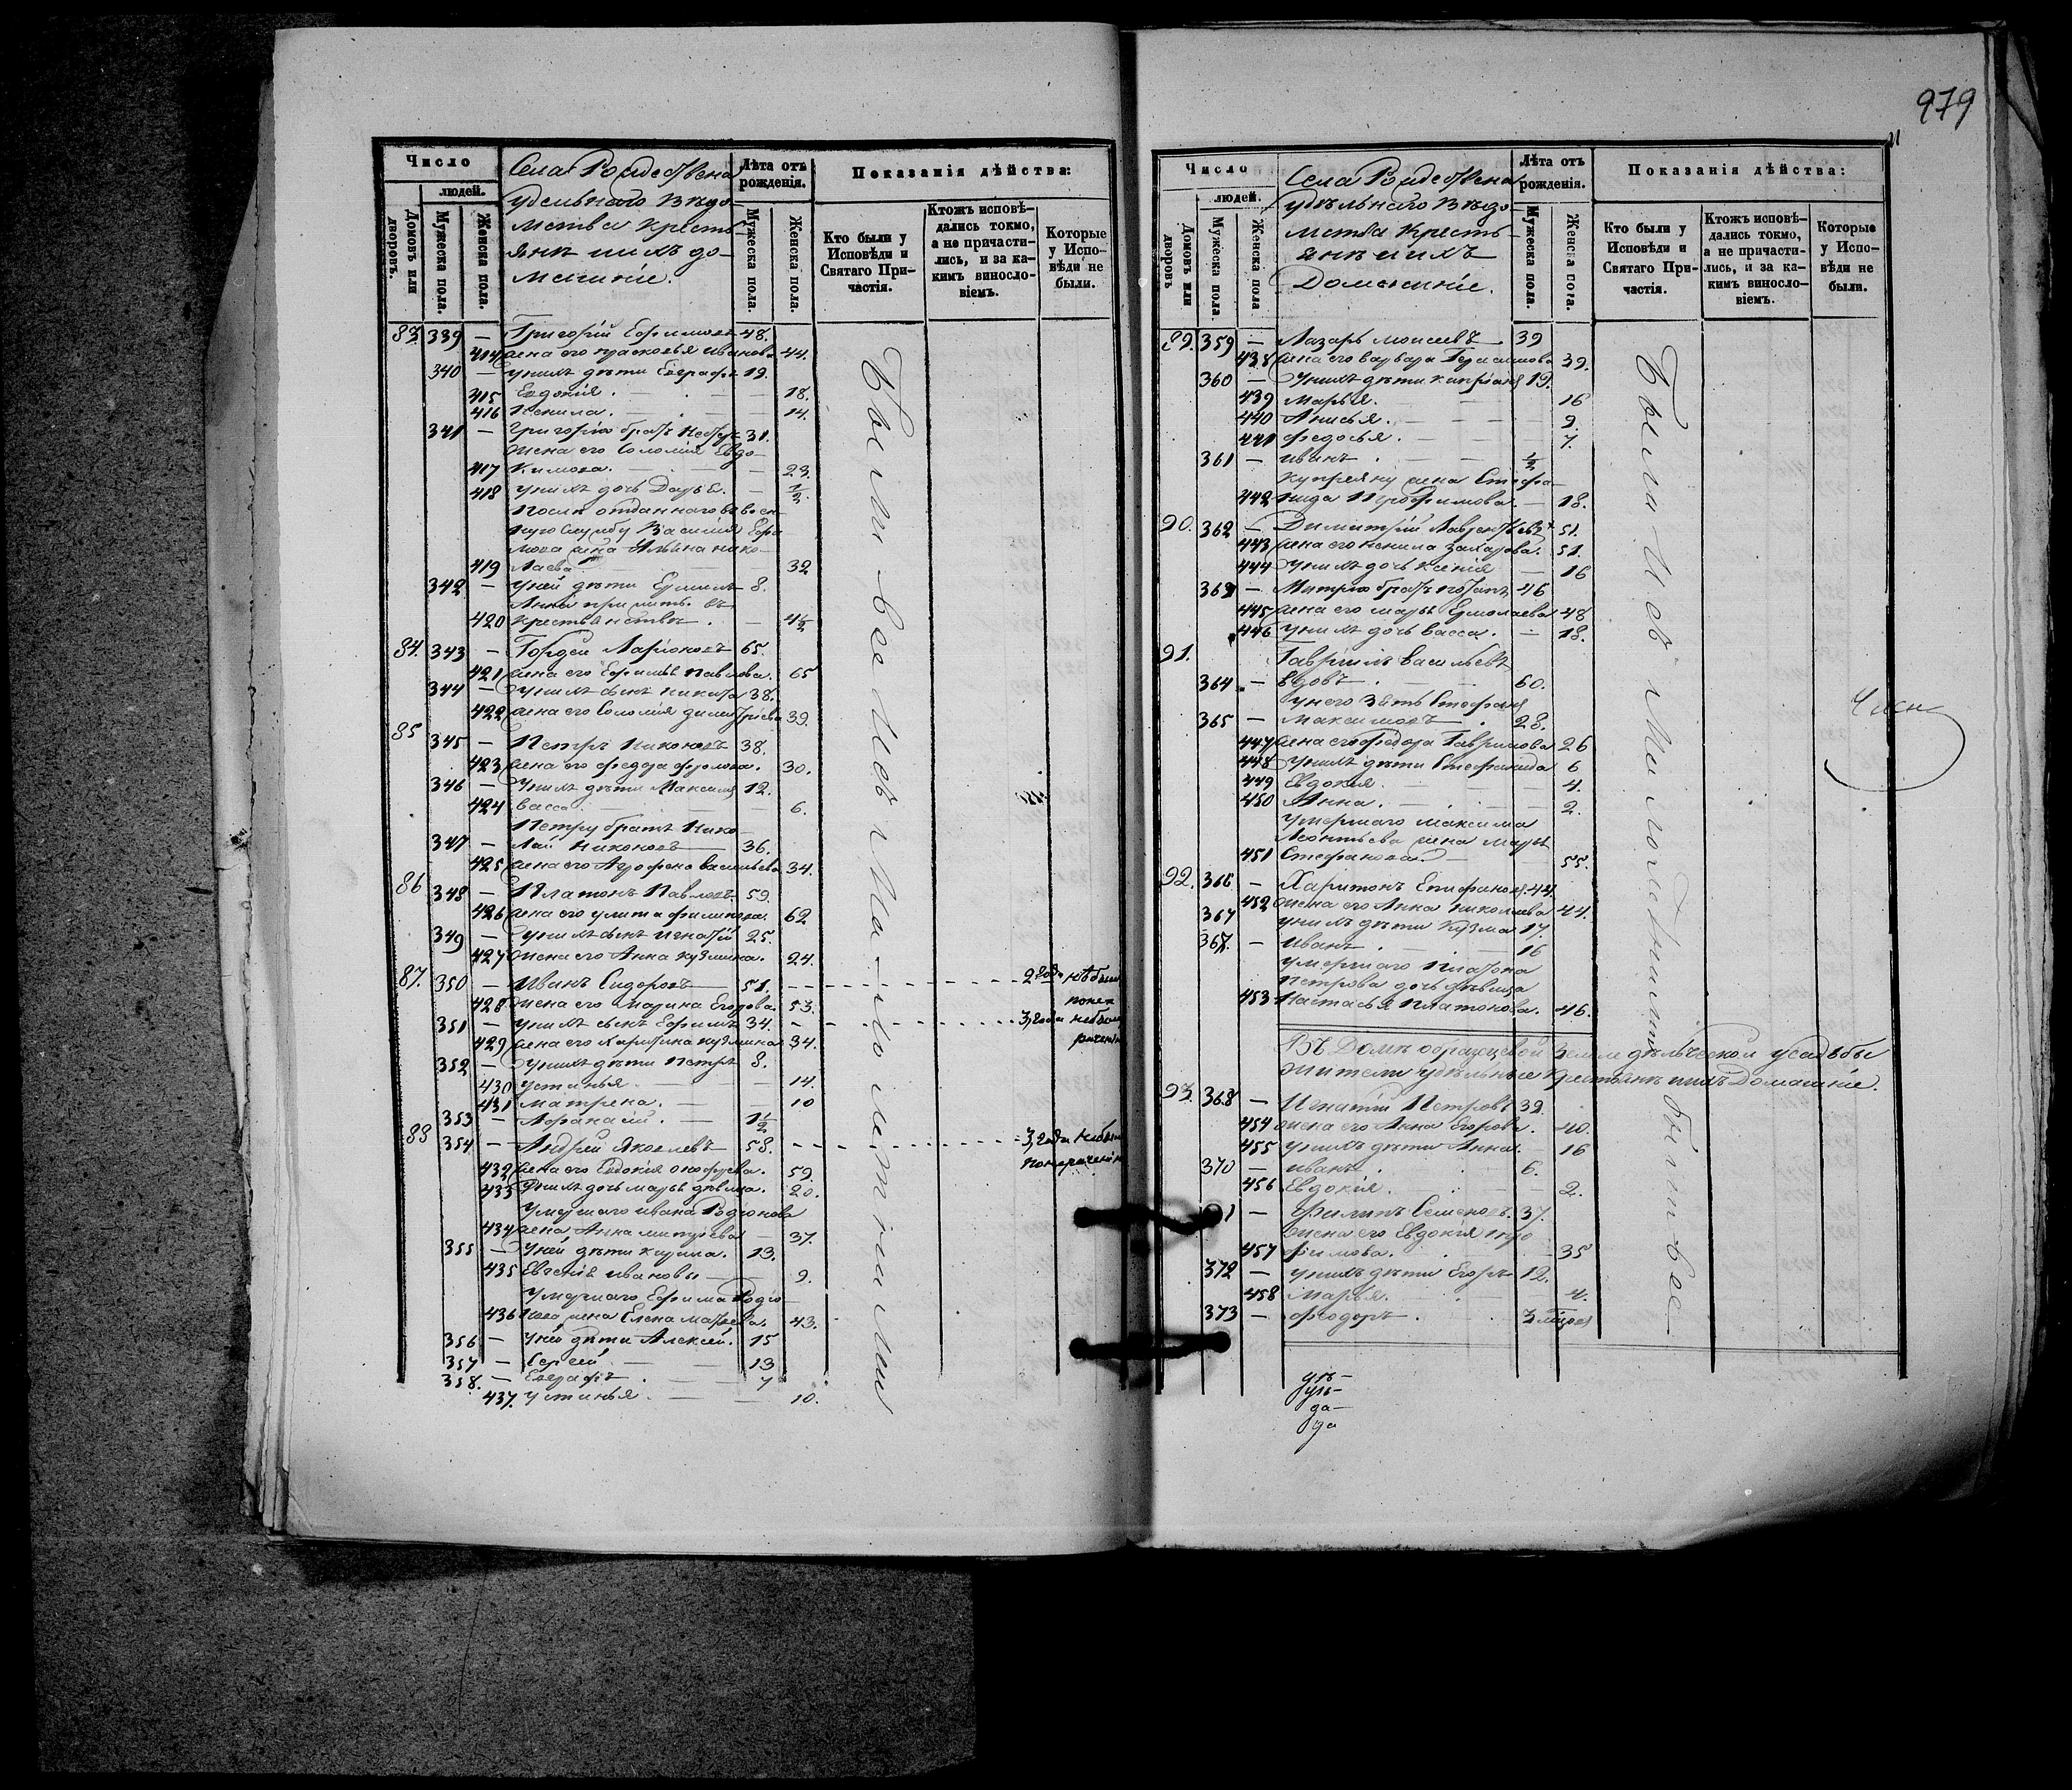 979
11
Число
людей.
Домовъ или дворовъ.
Мужеска пола.
Женска пола.
Села Рождествена
удельнаго Вѣдо-
мства кресть-
янѣ и ихъ до-
машніе.
Лѣта отъ рожденія.
Мужеска пола.
Женска пола.
Показанія дѣйства:
Кто были у Исповѣди и Святаго При-частія.
Ктожъ исповѣ-дались токмо, а не причасти-лись, и за ка-кимъ винословіемъ.
Которые у Испо-вѣди не были.
83. 339 — Григорій Ефимовъ 48.
414 жена его Прасковья Иванова 44.
340 — у нихъ дѣти Евграфъ 19.
415 Евдокія. — 18.
416 Ненила. — 14.
341 — Григорію братъ 31.
жена его Соломія Евдо-
417 кимова. — 23.
418 у нихъ дочь Дарья. — 1/2.
После отданнаго въ воен-
ную службу Василія Ефи
мова жена Ульяна Нико-
419 лаева — 32
342 — у ней дѣти 8.
Анна
420 крестьянствѣ. — 4 1/2
84. 343 — Гордей Ларіоновъ 65.
421 жена его Ефимья Павлова. 65
344 — у нихъ сынъ Никита 38.
422 жена его Соломія Димитріева 39.
85 345 — Петръ Никоновъ 38.
423 жена его Федора Фролова. 30.
346 — у нихъ дѣти Максимъ 12.
424 Васса. — 6.
Петру братъ Нико-
347 — лай Никоновъ 36.
425 жена его Агрофена Васильева 34.
86 348 — Платонъ Павловъ 59.
426 жена его Улита Филипова. 62
349 — у нихъ сынъ Игнатій 25.
427 жена его Анна Кузмина. 24.
87. 350 — Иванъ Сидоровъ 51. 2 года не были
428 жена его Марина Егорова. 53. понер
351 — у нихъ сынъ Ефимъ 34. 3 года не были
429 жена его Харитина Кузмина 34. раченію
352 — у нихъ дѣти Петръ 8.
430 Устинья. — 14.
431 Матрена. — 10
353 — Афанасій. — 1 1/2
88 354 — Андрей Яковлевъ 58. 3 года не были
432 жена его Евдокія Онофрева. 59. понераченію
433 у нихъ дочь Марья дѣвица. 20.
Умершаго Ивана Родіонова
434 жена Анна Митрева — 37.
355 — у ней дѣти Кирила. 13.
435 Евгенія Ивановы — 9.
Умершаго Ефима Родіо-
436 нова жена Елена Матвева. 43.
356 — у ней дѣти Алексѣй. 15
357 — Сергей — 13
358. — Евграфъ. — 7
437. Устинья. — 10.
Были все Иев Ма ло летными
Число
людей.
Домовъ или дворовъ
Мужеска пола.
Женска пола
Села Рождествена
удѣльнаго Вѣдо-
мства кресть-
янѣ и ихъ
Домашніе.
Лѣта отъ рожденія.
Мужеска пола.
Женска пола.
Показанія дѣйства:
Кто были у Исповѣди и Святаго При-частія.
Ктожъ исповѣ-дались токмо, а не причасти-лись, и за ка-кимъ винословіемъ.
Которые у Испо-вѣди не были.
89. 359 — Лазарь Моисеевъ 39
438 жена его Варвара Герасимова 39.
360 — у нихъ дѣти Кипріанъ 19.
439 Марья. — 16
440 Анисья. — 9.
441 Федосья. — 7.
361 — Иванъ. — 1/2
Купреяну жена Стефа-
442 нида Трофимова. — 18.
90. 362 — Димитрій Лаврентьевъ 51.
443 жена его Ненила Захарова. 51.
444 у нихъ дочь Ксенія — 16
363 — Митрію братъ Потапъ 46
445 жена его Марья Ермолаева 48
446 у нихъ дочь Васса. — 18.
91. Гавріилъ Васильевъ
364 — вдовъ. — 60.
у него зять Стефанъ
365 — Максимовъ 28.
447 жена его Федора Гаврилова 26
448 у нихъ дѣти Стефанида 6
449 Евдокія. — 4.
450 Анна. — 2.
Умершаго Максима
Леонтьева жена Марья
451 Стефанова. — 55.
92. 366 — Харитонъ Епифановъ. 44.
452 жена его Анна Николаева 44.
367 у нихъ дѣти Кузма 17.
367. — Иванъ. — 16
Умершаго Платона
Петрова дочь дѣвица
453 Настасья Платонова. 46.
Въ Домѣ образцовой Земледѣльческой усадьбы
жители удѣльные крестьянѣ и ихъ Домашніе.
93. 368 — Игнатій Петровъ 39.
454 жена его Анна Егорова. 40.
455 у нихъ дѣти Анна. — 16
370 — Иванъ. — 6.
456 Евдокія. — 2.
1 — Филипъ Семеновъ. 37.
жена его Евдокія Тро
457 фимова. — 35
372 — у нихъ дѣти Егоръ 12.
458 Марья. — 4.
373 — Феодоръ. 3
Член